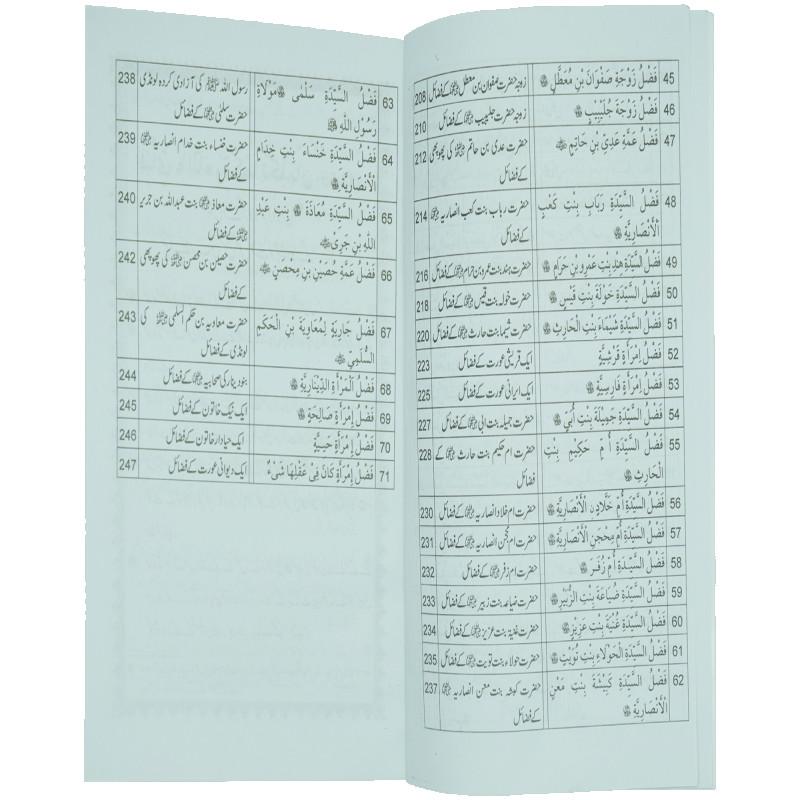 45 فَضْلُ زَوْجَةِ صَفْوَانَ بْنِ مُعَطَّلٍ زوجہ حضرت صفوان بن معطل کے فضائل 208
46 فَضْلُ زَوْجَةِ جُلَيْبِيبٍ زوجہ حضرت جلیبیب کے فضائل 210
47 فَضْلُ عَمَّةِ عَدِيِّ بْنِ حَاتِمٍ حضرت عدی بن حاتم کی پھوپھی 212
کے فضائل
48 فَضْلُ السَّيِّدَةِ رَبَابِ بِنْتِ كَعْبٍ حضرت رباب بنت کعب انصاریہ 214
الْأَنْصَارِيَّةِ کے فضائل
49 فَضْلُ السَّيِّدَةِ هِنْدِ بِنْتِ عَمْرِو بْنِ حَرَامٍ حضرت ہند بنت عمرو بن حرام کے فضائل 216
50 فَضْلُ السَّيِّدَةِ خَوْلَةَ بِنْتِ قَيْسٍ حضرت خولہ بنت قیس کے فضائل 218
51 فَضْلُ السَّيِّدَةِ شَيْمَاءَ بِنْتِ الْحَارِثِ حضرت شیما بنت حارث کے فضائل 220
52 فَضْلُ اِمْرَأَةٍ قُرَشِيَّةٍ ایک قریشی عورت کے فضائل 223
53 فَضْلُ اِمْرَأَةٍ فَارِسِيَّةٍ ایک ایرانی عورت کے فضائل 225
54 فَضْلُ السَّيِّدَةِ جَمِيْلَةَ بِنْتِ أُبَيٍّ حضرت جمیلہ بنت ابی کے فضائل 227
55 فَضْلُ السَّيِّدَةِ أُمِّ حَكِيْمٍ بِنْتِ حضرت ام حکیم بنت حارث کے 228
الْحَارِثِ فضائل
56 فَضْلُ السَّيِّدَةِ أُمِّ خَلَّادٍ الْأَنْصَارِيَّةِ حضرت ام خلاد انصاریہ کے فضائل 230
57 فَضْلُ السَّيِّدَةِ أُمِّ مِحْجَنٍ الْأَنْصَارِيَّةِ حضرت ام محجن انصاریہ کے فضائل 231
58 فَضْلُ السَّيِّدَةِ أُمِّ زُفَرَ حضرت ام زفر کے فضائل 232
59 فَضْلُ السَّيِّدَةِ ضُبَاعَةَ بِنْتِ الزُّبَيْرِ حضرت ضباعہ بنت زبیر کے فضائل 233
60 فَضْلُ السَّيِّدَةِ غُنْيَةَ بِنْتِ عَزِيْزٍ حضرت غنیۃ بنت عزیز کے فضائل 234
61 فَضْلُ السَّيِّدَةِ الْحَوْلَاءِ بِنْتِ تُوَيْتٍ حضرت حولاء بنت تویت کے فضائل 235
62 فَضْلُ السَّيِّدَةِ كَبْشَةَ بِنْتِ مَعْنٍ حضرت کبشہ بنت معن انصاریہ 237
الْأَنْصَارِيَّةِ کے فضائل
63 فَضْلُ السَّيِّدَةِ سَلْمٰى مَوْلَاةِ رسول اللہ ﷺ کی آزادی کردہ لونڈی 238
رَسُوْلِ اللّٰهِ ﷺ حضرت سلمٰی کے فضائل
64 فَضْلُ السَّيِّدَةِ خَنْسَاءَ بِنْتِ خِذَامٍ حضرت خنساء بنت خدام انصاریہ 239
الْأَنْصَارِيَّةِ کے فضائل
65 فَضْلُ السَّيِّدَةِ مُعَاذَةَ بِنْتِ عَبْدِ حضرت معاذہ بنت عبداللہ بن جریر 240
اللّٰهِ بْنِ کے فضائل
66 فَضْلُ عَمَّةِ حُصَيْنِ بْنِ مِحْصَنٍ حضرت حصین بن محصن کی پھوپھی 242
کے فضائل
67 فَضْلُ جَارِيَةٍ لِمُعَاوِيَةَ بْنِ الْحَكَمِ حضرت معاویہ بن حکم السلمی کی 243
السُّلَمِيِّ لونڈی کے فضائل
68 فَضْلُ الْمَرْأَةِ الدِّيْنَارِيَّةِ بنو دینار کی صحابیہ کے فضائل 244
69 فَضْلُ اِمْرَأَةٍ صَالِحَةٍ ایک نیک خاتون کے فضائل 245
70 فَضْلُ اِمْرَأَةٍ حَيِيَّةٍ ایک حیادار خاتون کے فضائل 246
71 فَضْلُ اِمْرَأَةٍ كَانَ فِيْ عَقْلِهَا شَيْءٌ ایک دیوانی عورت کے فضائل 247